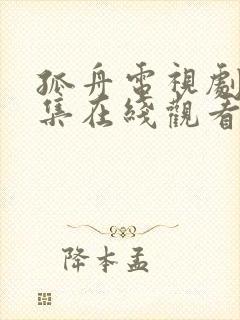 孤舟電視劇
集在綫觀看
降本孟